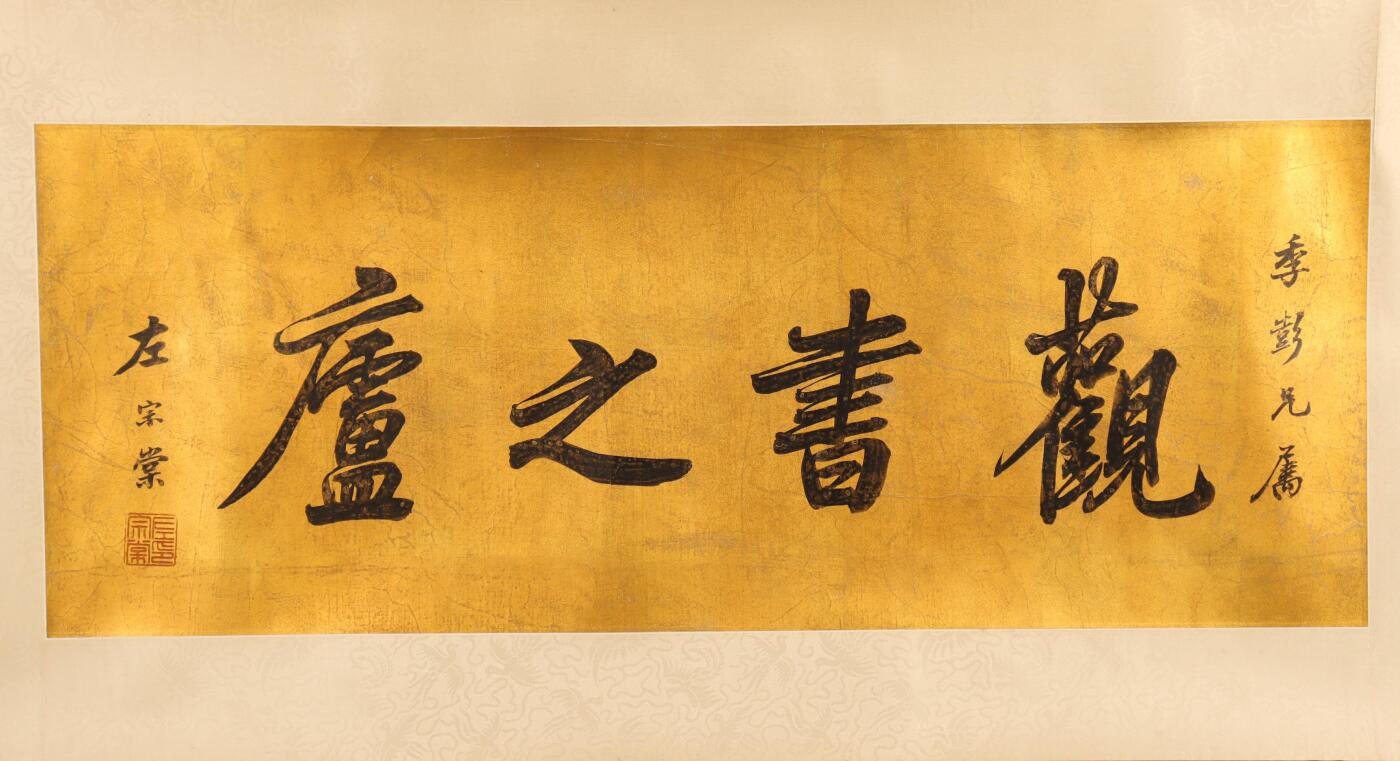 季彭兄屬
觀書之廬
左宗棠
左宗棠印